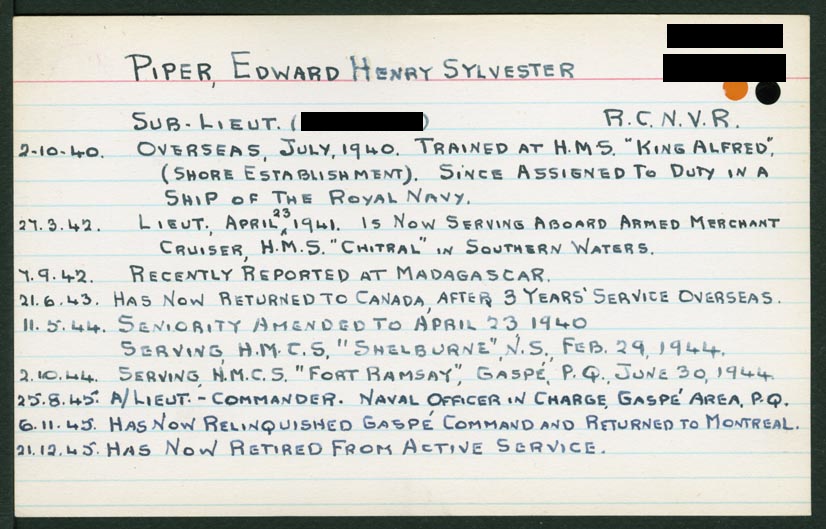 PIPER, EDWARD HENRY SYLVESTER
SUB-LIEUT. ( ) R.C.N.V.R.
2-10-40. OVERSEAS, JULY, 1940. TRAINED AT H.M.S. "KING ALFRED",
(SHORE ESTABLISHMENT). SINCE ASSIGNED TO DUTY IN A
SHIP OF THE ROYAL NAVY.
27.3.42. LIEUT., APRIL 23, 1941. IS NOW SERVING ABOARD ARMED MERCHANT
CRUISER, H.M.S. "CHITRAL" IN SOUTHERN WATERS.
7.9.42. RECENTLY REPORTED AT MADAGASCAR.
21.6.43. HAS NOW RETURNED TO CANADA, AFTER 3 YEARS' SERVICE OVERSEAS.
11.5.44. SENIORITY AMENDED TO APRIL 23 1940
SERVING, H.M.C.S, "SHELBURNE", N.S., FEB. 29, 1944.
2.10.44. SERVING, H.M.C.S. "FORT RAMSAY", GASPÉ, P.Q., JUNE 30, 1944
25.8.45. A/LIEUT.-COMMANDER. NAVAL OFFICER IN CHARGE, GASPÉ AREA, P.Q.
6.11.45. HAS NOW RELINQUISHED GASPÉ COMMAND AND RETURNED TO MONTREAL.
21.12.45. HAS NOW RETIRED FROM ACTIVE SERVICE.